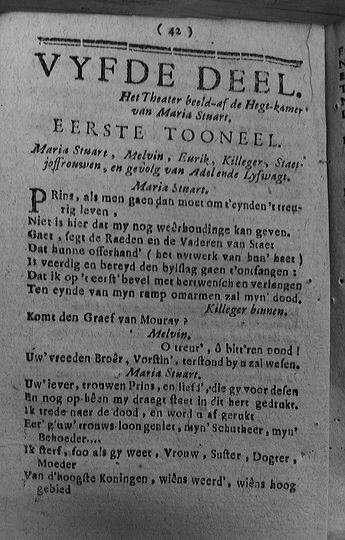 ( 42 )
VYFDE DEEL.
Het Theater beeld-af de Hegt-kamer
van Maria Stuart.
EERSTE TOONEEL.
Maria Stuart, Melvin, Eurik, Killeger, Staet-
joffrouwen, en gevolg van Adel ende Lyfwagt.
Maria Stuart.
PRins, als men gaen dan moet om t'eynden 't treu-
rig leven,
Niet is hier dat my nog weêrhoudinge kan geven.
Gaet, segt de Raeden en de Vaderen van Staet
Dat hunne offerhand' ( het uytwerk van hun' haet )
Is veerdig en bereyd den bylslag gaen t'ontfangen :
Dat ik op 't eerst' bevel met hertwensch en verlangen
Ten eynde van myn ramp omarmen zal myn' dood.
Killeger binnen.
Komt den Graef van Mouray ?
Melvin.
O treur', ô bitt'ren nood !
Uw' vreeden Broêr, Vorstin', terstond by u zal wesen.
Maria Stuart.
Uw' iever, trouwen Prins, en liefd', die gy voor desen
En nog op-heên my draegt staet in dit hert gedrukt.
Ik trede naer de dood, en word u af gerukt
Eer g'uw' trouws loon geniet, myn' Schutheer, myn'
Behoeder....
Ik sterf, soo als gy weet, Vrouw, Suster, Dogter,
Moeder
Van d'hoogste Koningen, wiêns weerd', wiêns hoog
gebied